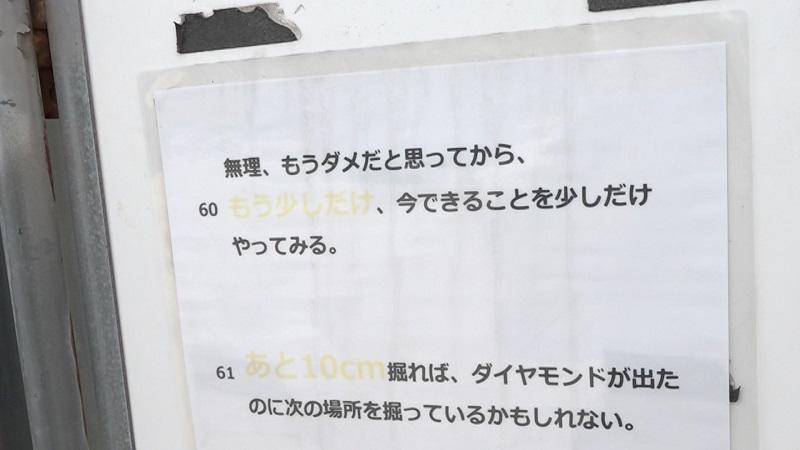 無理、もうダメだと思ってから、
60 もう少しだけ、今できることを少しだけ
やってみる。
61 あと10cm掘れば、ダイヤモンドが出た
のに次の場所を掘っているかもしれない。